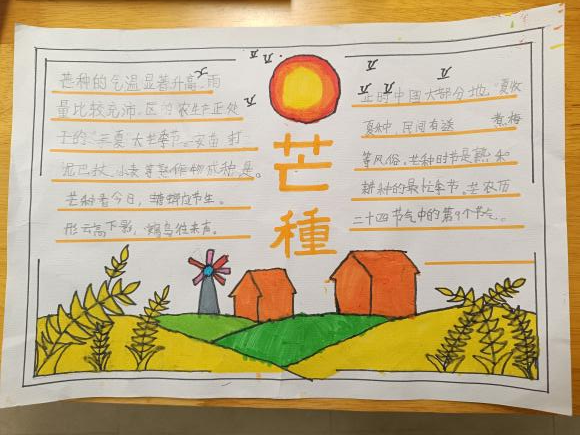 芒种的气温显著升高、雨
量比较充沛。区的农生产正处
于的"三夏"大忙季节。
芒种看今日，螗螂应节生。
形云高下影，鴳鸟往来声。
芒種
正的中国大部分地。夏收
夏种，民间有送 煮梅
等风俗，芒种时节是
耕种的最忙季节，芒农历
二十四节气中的第9个节气。